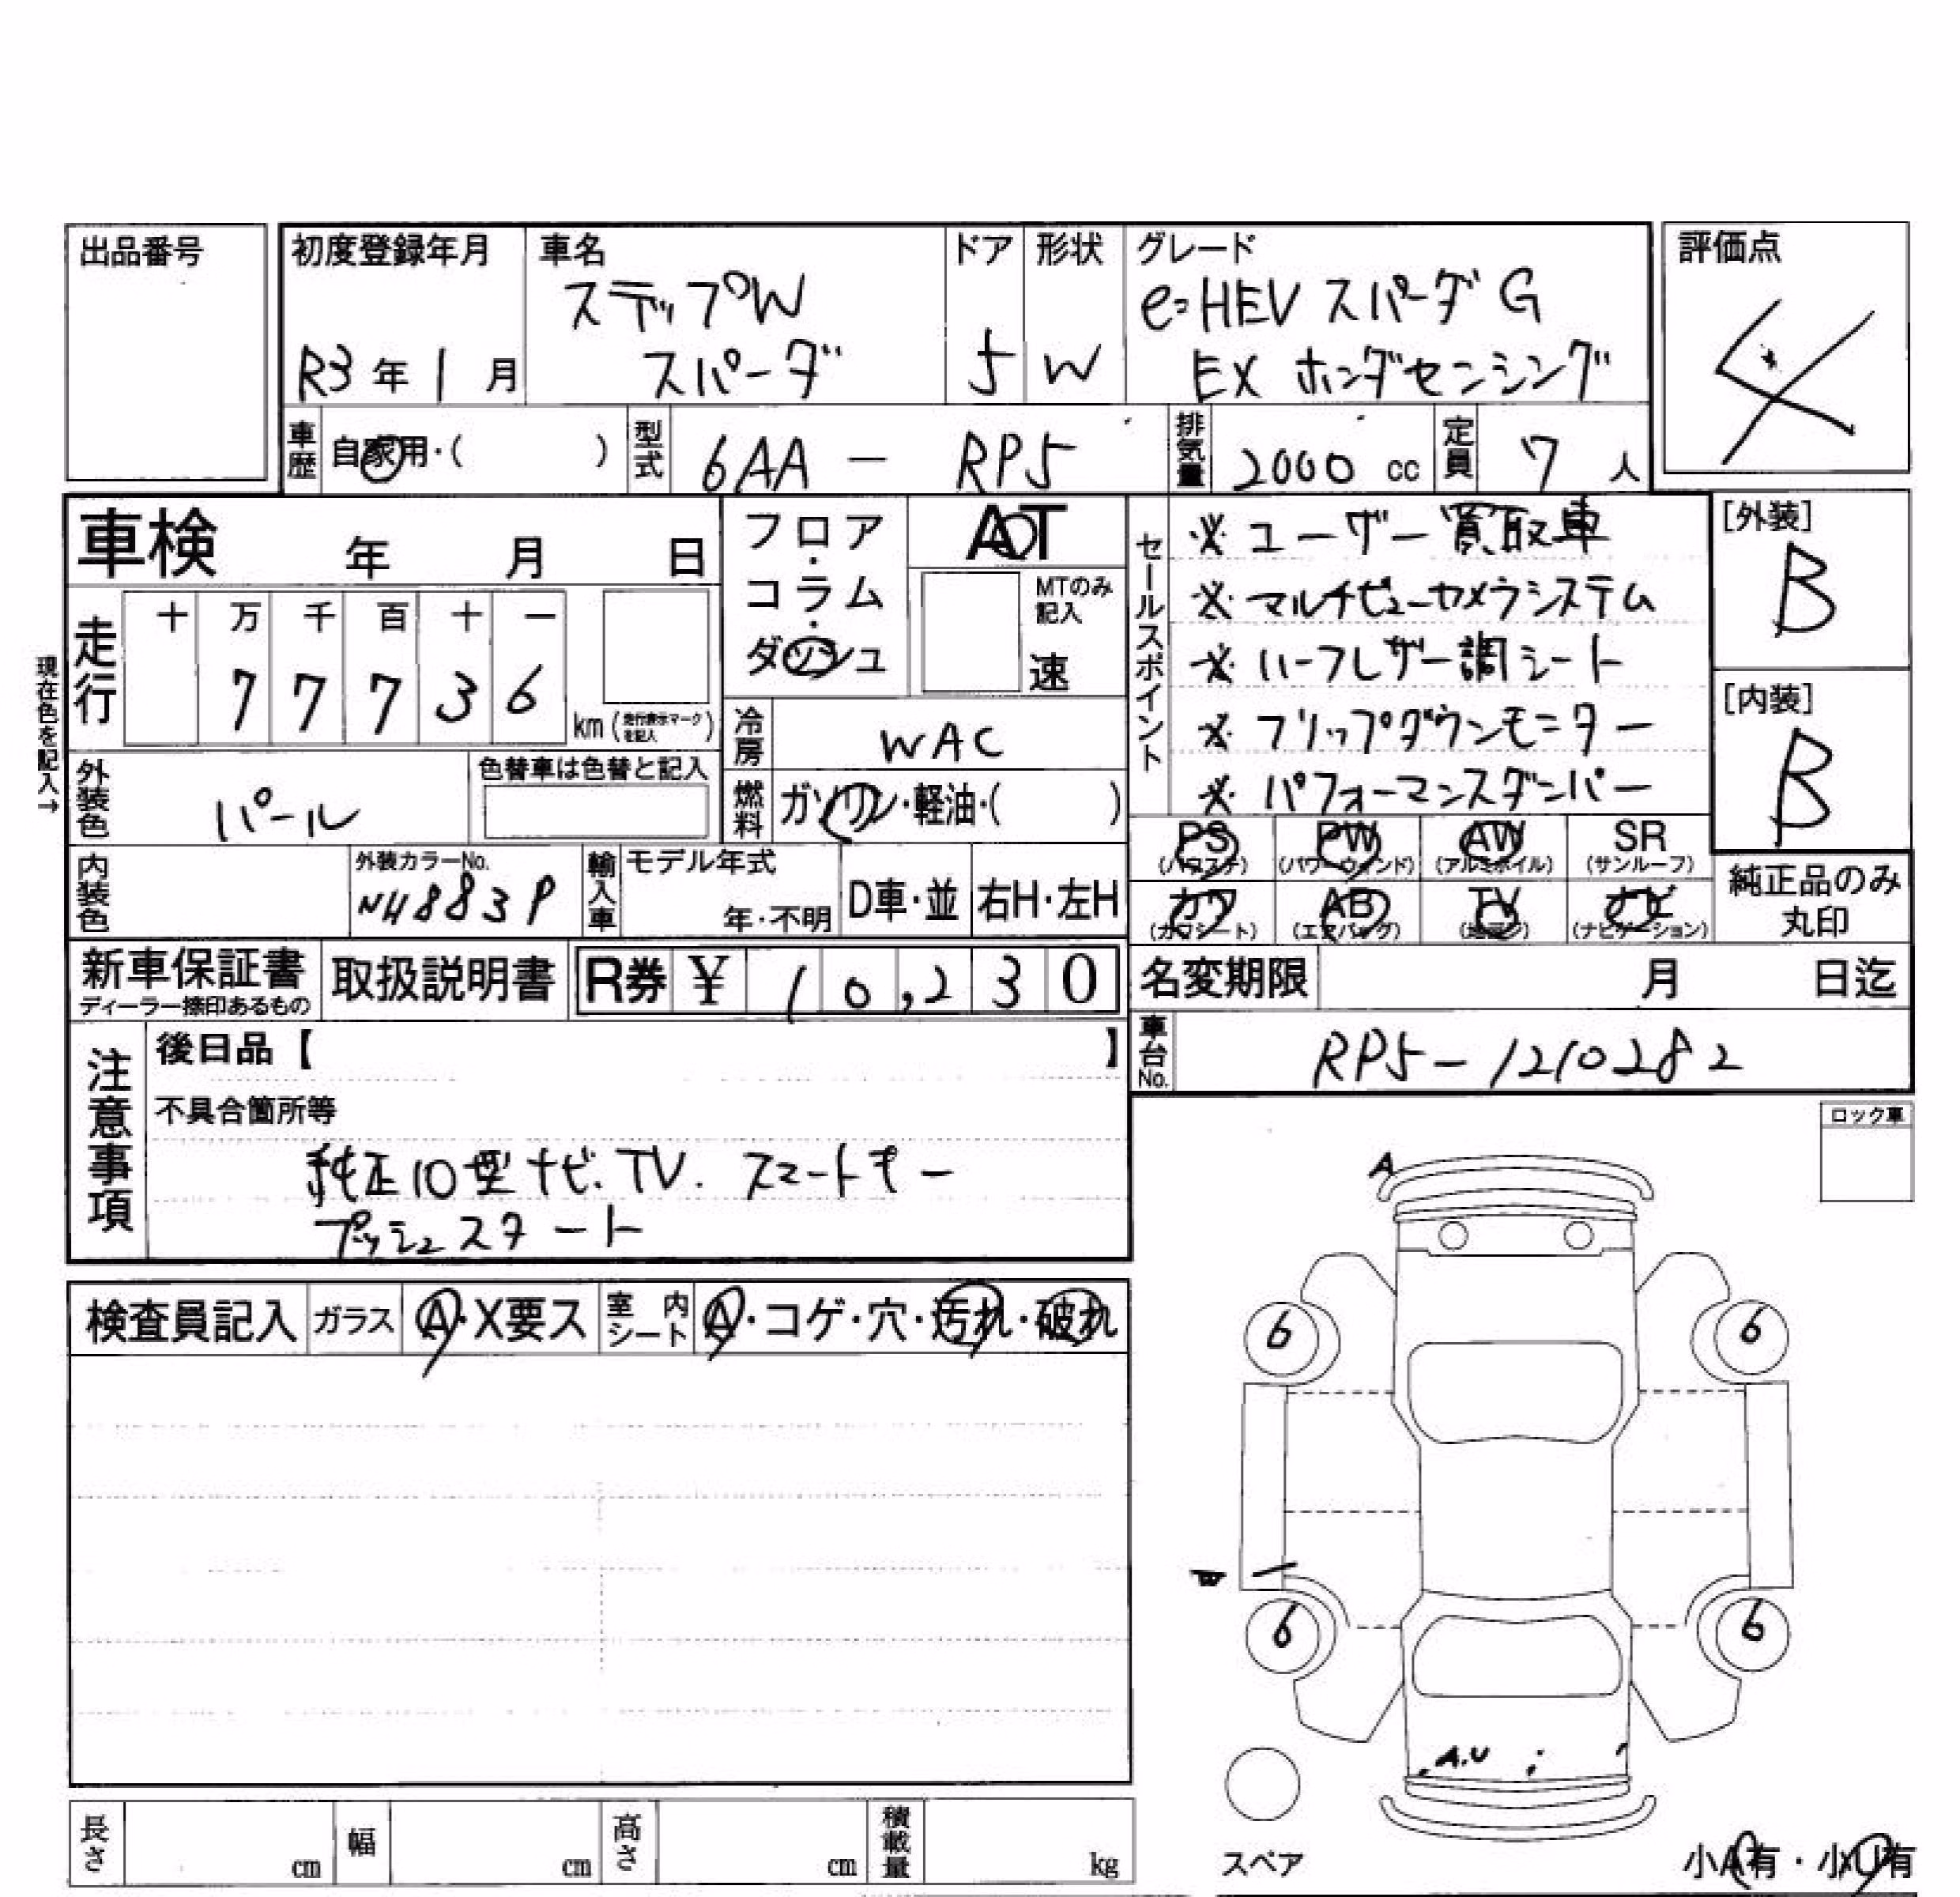 出品番号
初度登録年月
R3年1月
車名
ステップW
スパーダ
ドア
5
形状
W
グレード
e:HEV スパーダ G
EX ホンダセンシング
評価点
4
車歴
自家用・( )
型式
6AA - RP5
排気量
2000 cc
定員
7人
車検 年 月 日
フロア・コラム・ダッシュ
AT
MTのみ記入
速
セールスポイント
※ ユーザー買取車
※ マルチビューカメラシステム
※ ハーフレザー調シート
※ フリップダウンモニター
※ パフォーマンスダンパー
[外装]
B
[内装]
B
現在色を記入→
走行
十 万 千 百 十 一
7 7 7 3 6
km (走行表示マークを記入)
冷房
WAC
外装色
パール
色替車は色替と記入
燃料
ガソリン・軽油・( )
PS (パワステ)
PW (パワーウィンド)
AW (アルミホイル)
SR (サンルーフ)
カワ (カワシート)
AB (エアバッグ)
TV (地デジ)
ナビ (ナビゲーション)
純正品のみ丸印
内装色
外装カラーNo.
NH883P
輸入車
モデル年式
年・不明
D車・並
右H・左H
新車保証書
ディーラー捺印あるもの
取扱説明書
R券 ¥ 10,230
名変期限 月 日迄
車台No.
RP5-1210282
注意事項
後日品【 】
不具合箇所等
純正10型ナビ. TV. スマートキー
プッシュスタート
ロック車
A
検査員記入
ガラス
A・X要ス
室内シート
A・コゲ・穴・汚れ・破れ
6
6
W
6
6
A.U
スペア
長さ cm
幅 cm
高さ cm
積載量 kg
小A有・小U有